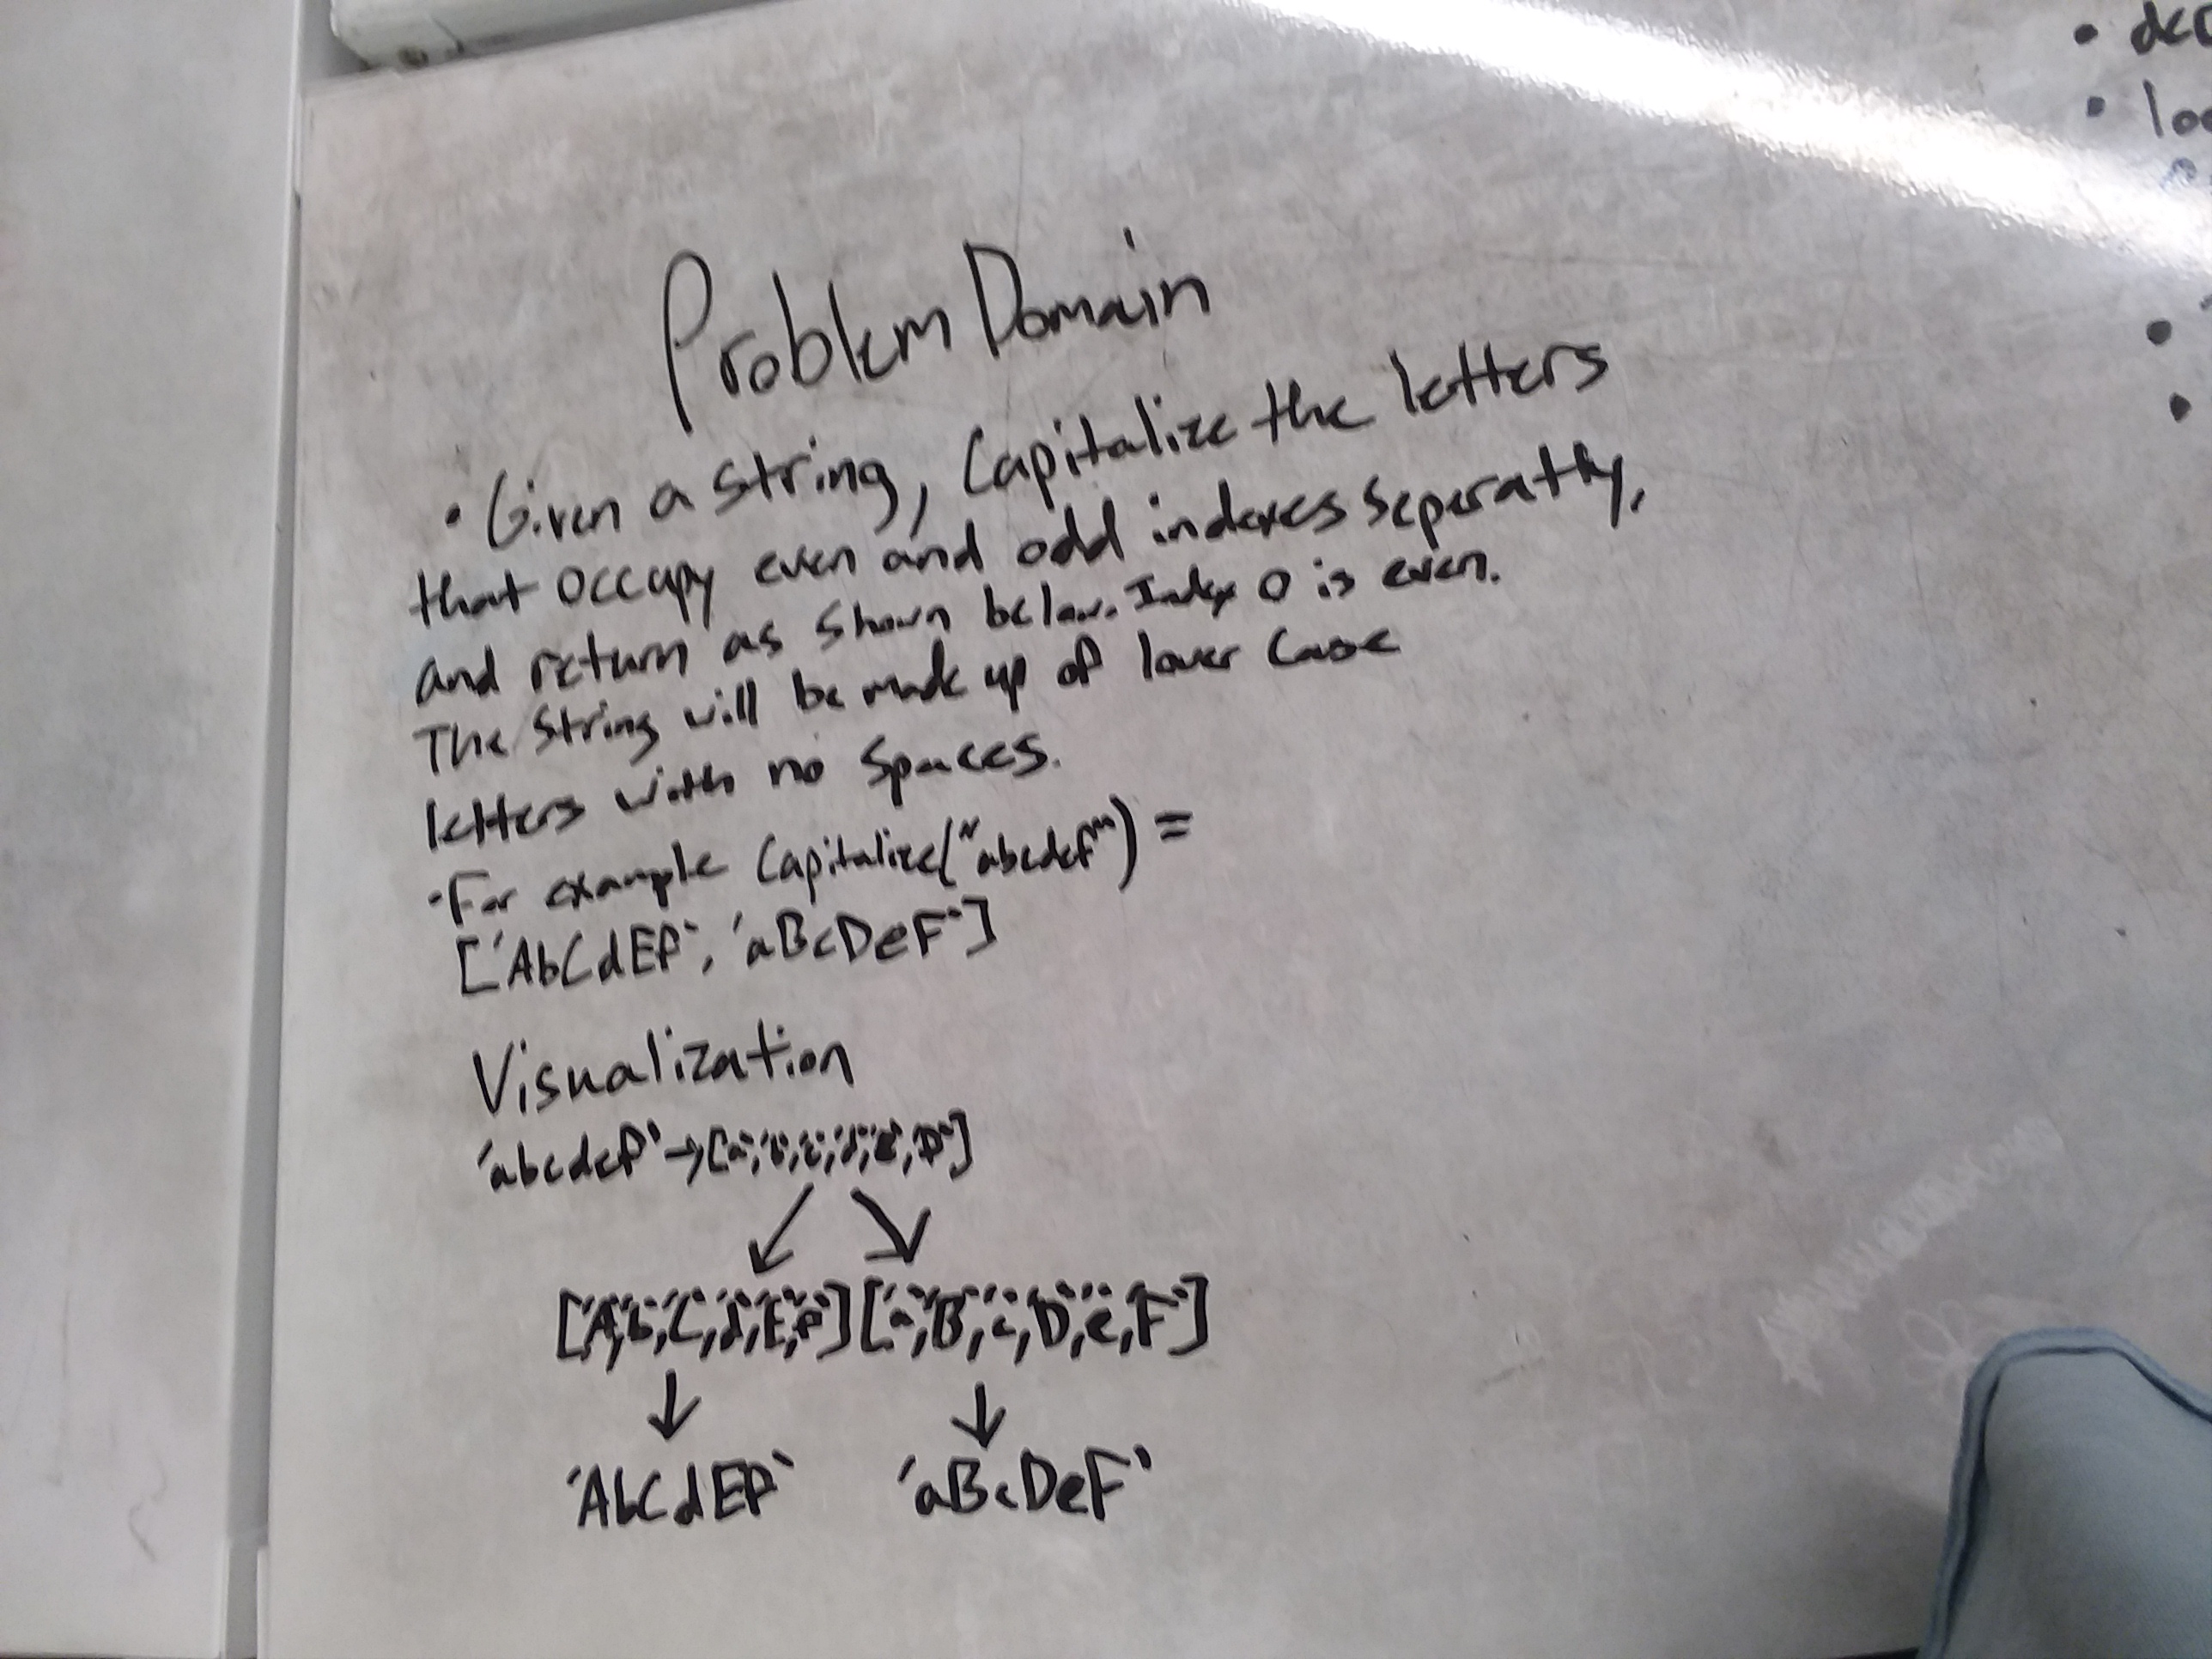 Problem Domain
• Given a string, Capitalize the letters
that occupy even and odd indexes seperatly,
and return as shown below. Index 0 is even.
The string will be made up of lower case
letters with no spaces.
• For example Capitalize("abcdef") =
['AbCdEf', 'aBcDeF']
Visualization
'abcdef' → ['a','b','c','d','e','f']
['A','b','C','d','E','f'] ['a','B','c','D','e','F']
'AbCdEf' 'aBcDeF'